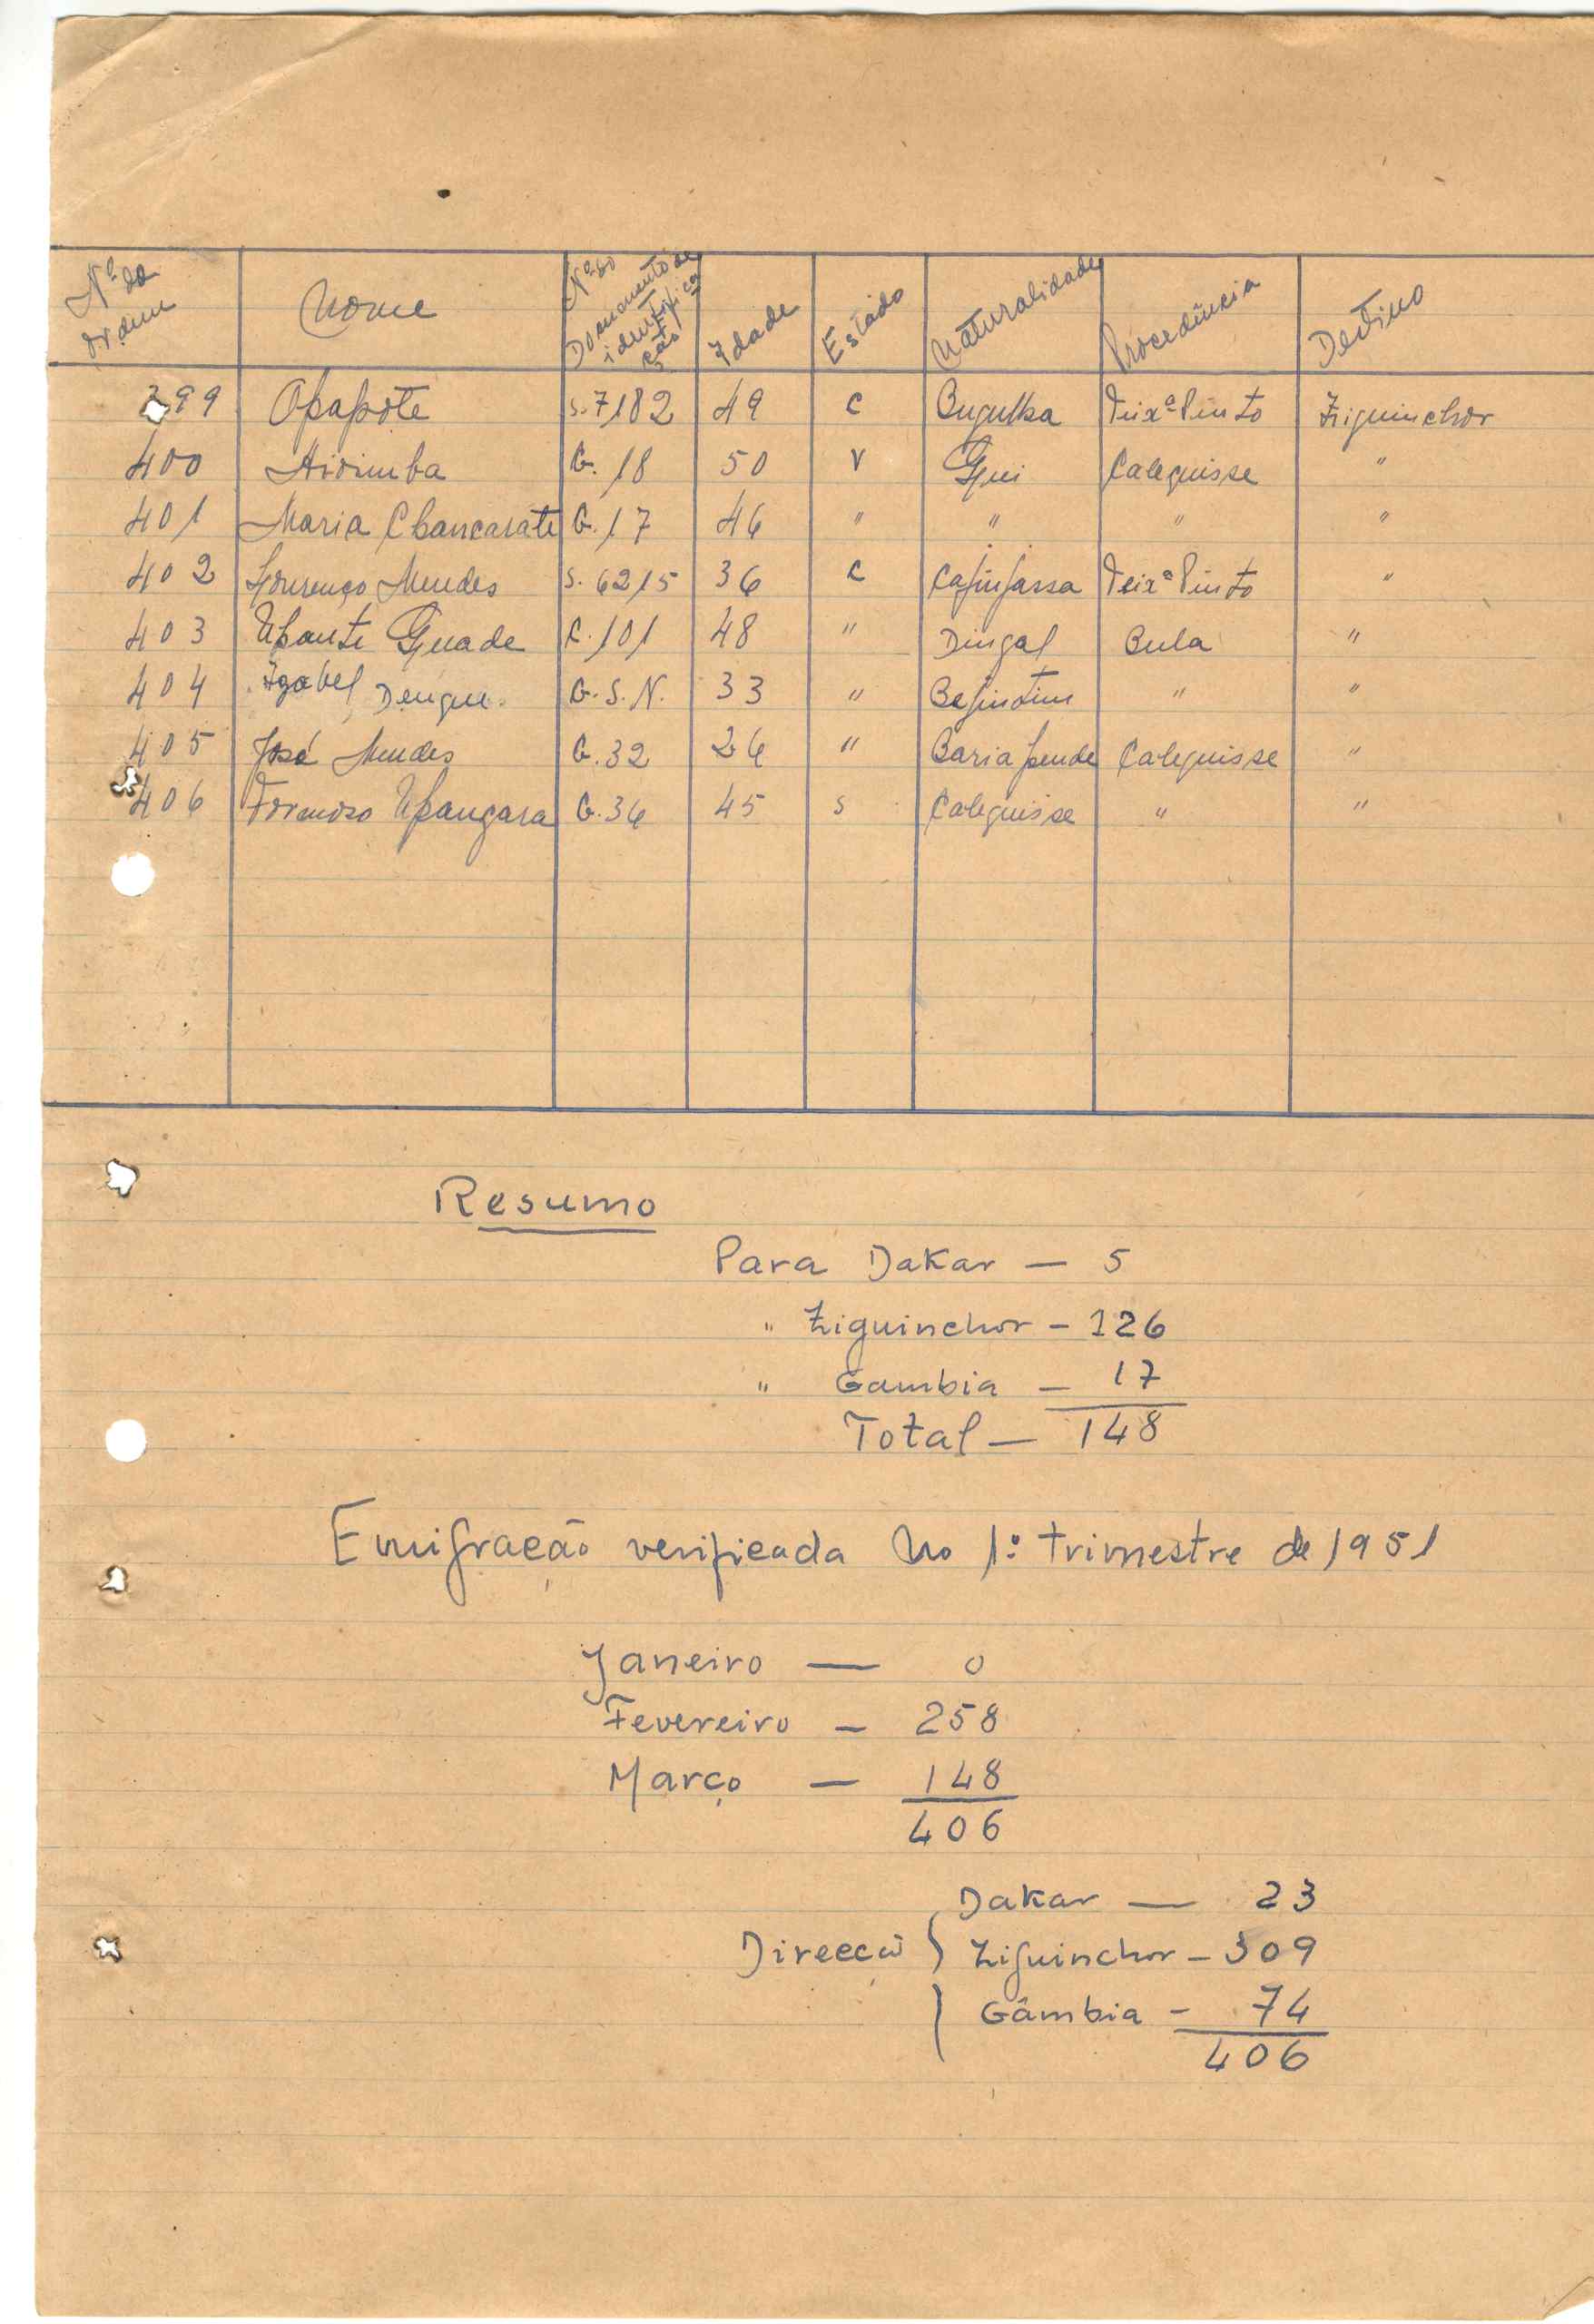 Nº de ordem Nome Nº do Documento de identificação Idade Estado Naturalidade Procedência Destino
399 Apapote S.7182 49 C Teixª Pinto Ziguinchor
400 G. 18 50 V Gui Calequisse "
401 Maria G. 17 46 " " " "
402 Lourenço Mendes S. 6215 36 C Teixª Pinto "
403 Upante Guade C. 101 48 " Dingal Bula "
404 Izabel Dengue. G. S. N. 33 " " "
405 José Mendes G. 32 26 " Calequisse "
406 Formoso Upangara G. 36 45 S Calequisse " "
Resumo
Para Dakar — 5
" Ziguinchor — 126
" Gambia — 17
Total — 148
Emigração verificada no 1º trimestre de 1951
Janeiro — 0
Fevereiro — 258
Março — 148
406
Dakar — 23
Direcção Ziguinchor — 309
Gâmbia — 74
406